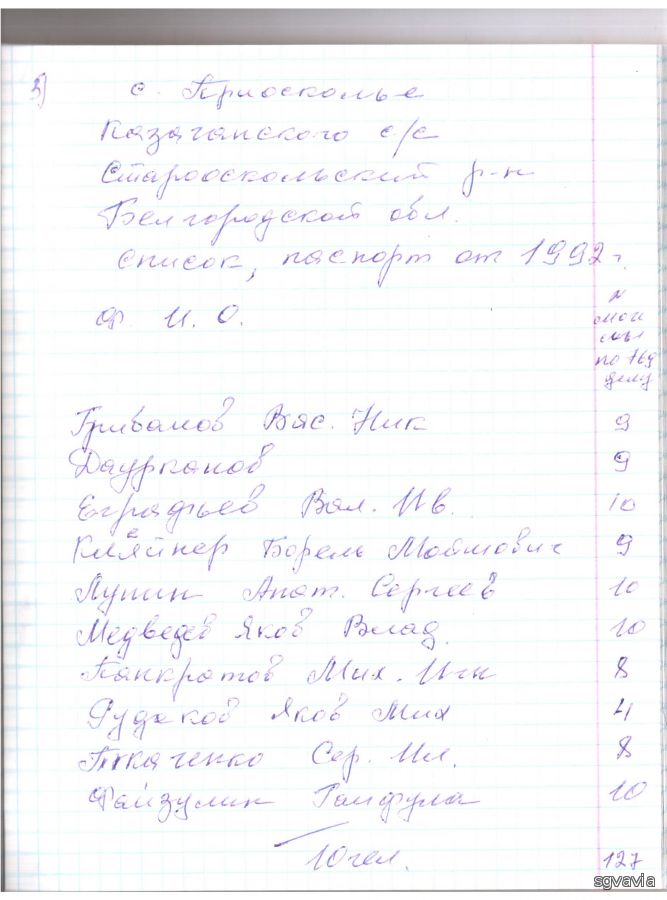 5)
с. Приосколье
Казачанского с/с
Старооскольский р-н
Белгородской обл.
Список, паспорт от 1992 г.
Ф. И. О.
N
по
делу
Грибанов Вас. Ник 9
Даурканов 9
Евграфьев Вал. Ив. 10
Клейнер Борель Моймович 9
Лупин Анат. Сергеев 10
Медведев Яков Влад. 10
Панкратов Мих. Игн 8
Рудаков Яков Мих 4
Ткаченко Сер. Ил. 8
Файзулин Гайфула 10
10 чел.
127
sgvavia